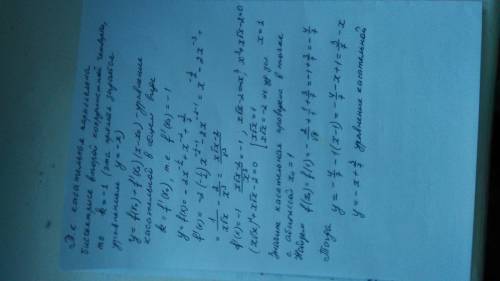 Т.к касательная параллельна
биссектрисе второй координатной четверти,
то k = -1 (эта прямая задаётся
уравнением y = -x)
y = f(x₀) + f'(x₀)(x-x₀) - уравнение
касательной в общем виде
k = f'(x₀), т.е f'(x₀) = -1
y = f(x) = -2x^{-1/2} + x^{-2} + 1/7
f'(x) = -2·(-1/2)x^{-1/2-1} - 2x^{-2-1} = x^{-3/2} - 2x^{-3} =
= 1/(x√x) - 2/x³ = (x√x-2)/x³
f'(x) = -1 (x√x-2)/x³ = -1 x√x-2 = -x³, x³+x√x-2=0
(x√x)²+x√x-2=0 [x√x=1 x=1
x√x=-2
Значит касательная проведена в точке
с абсциссой x₀ = 1
Найдем f(x₀) = f(1) = -2/√1 + 1/1 + 1/7 = -1 + 1/7 =
Тогда y = -1(x-1) =
y = -x + уравнение касательной